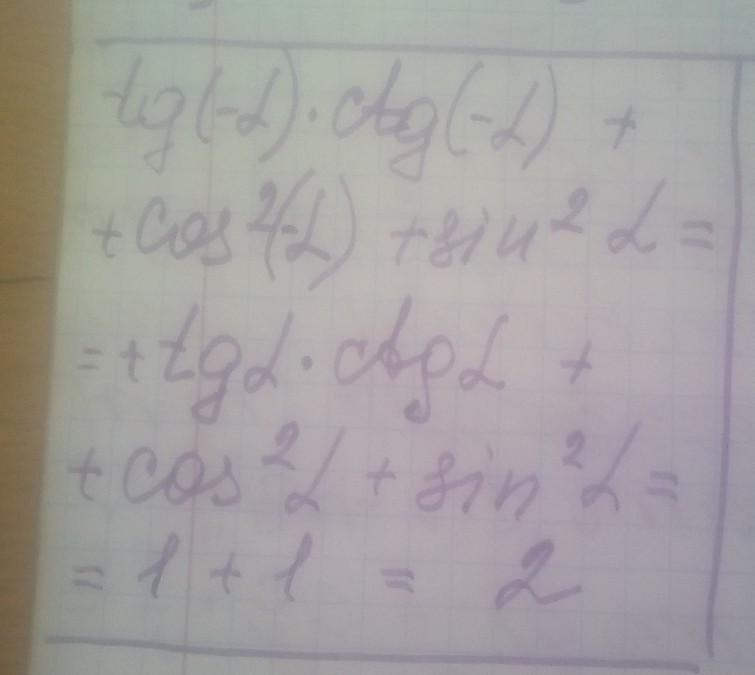 tg(-α)·ctg(-α) +
+cos²(-α) + sin² α =
= + tgα · ctgα +
+ cos²α + sin²α =
= 1 + 1 = 2